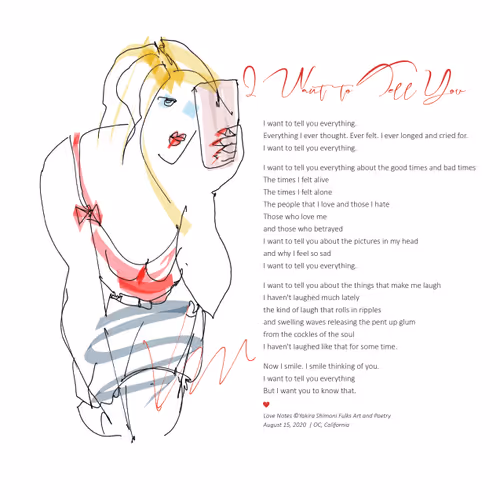 I Want to Tell You
I want to tell you everything.
Everything I ever thought. Ever felt. I ever longed and cried for.
I want to tell you everything.
I want to tell you everything about the good times and bad times
The times I felt alive
The times I felt alone
The people that I love and those I hate
Those who love me
and those who betrayed
I want to tell you about the pictures in my head
and why I feel so sad
I want to tell you everything.
I want to tell you about the things that make me laugh
I haven't laughed much lately
the kind of laugh that rolls in ripples
and swelling waves releasing the pent up glum
from the cockles of the soul
I haven't laughed like that for some time.
Now I smile. I smile thinking of you.
I want to tell you everything
But I want you to know that.
Love Notes ©Yakira Shimoni Fulks Art and Poetry
August 15, 2020 | OC, California